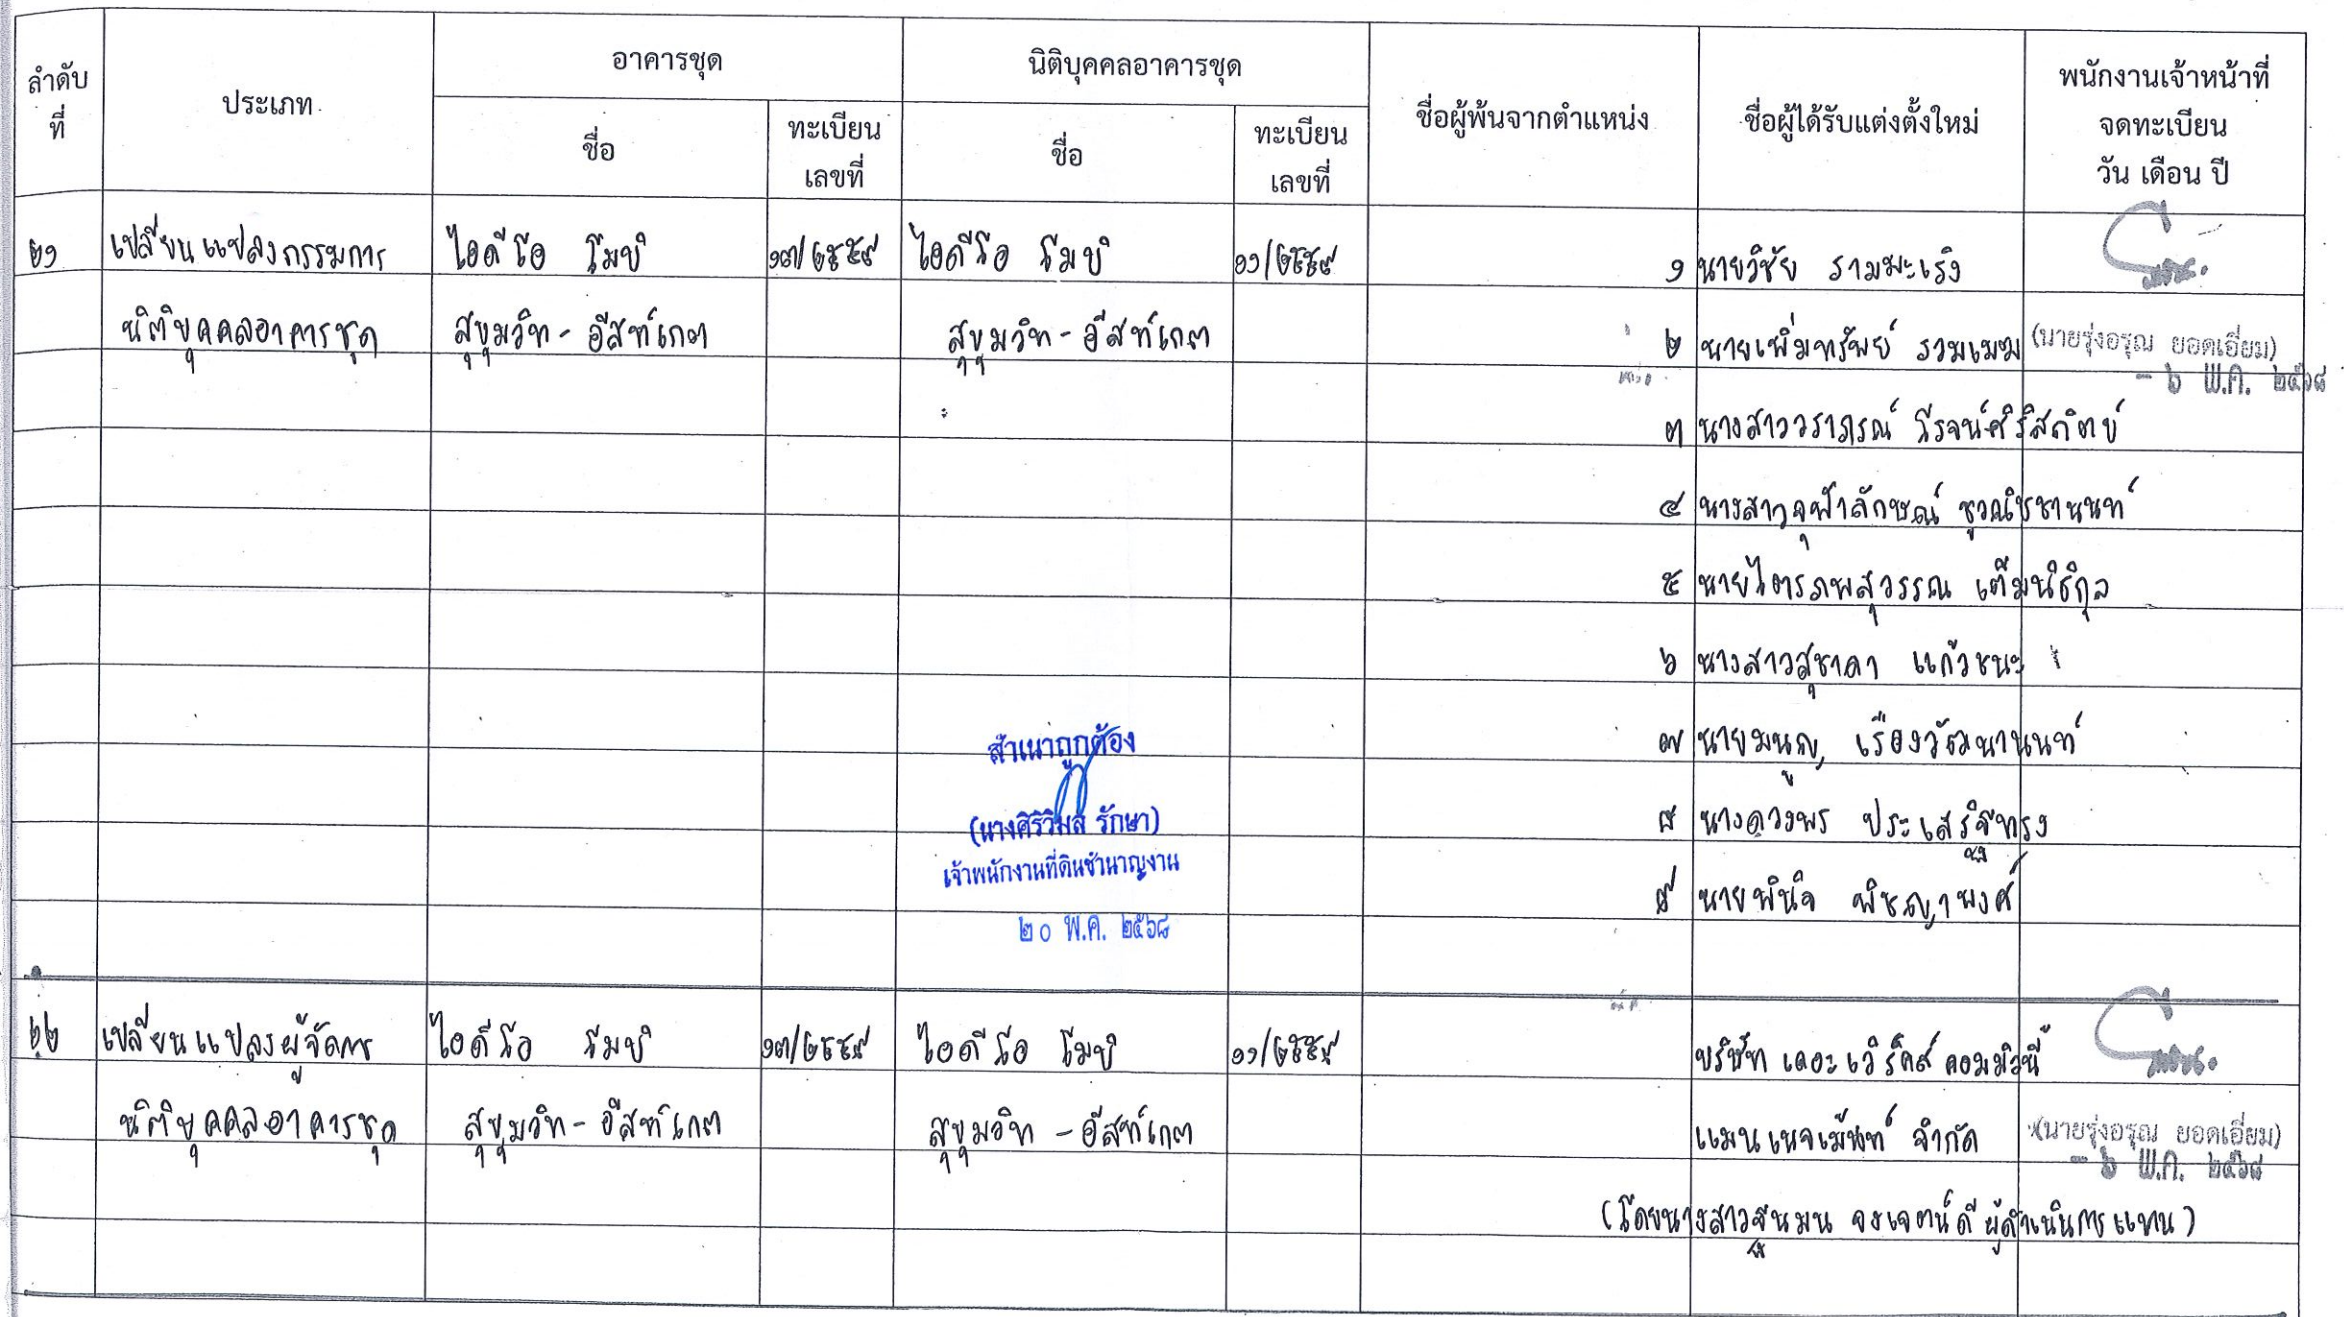 ลำดับ
ที่
ประเภท
อาคารชุด
ชื่อ
ทะเบียน
เลขที่
นิติบุคคลอาคารชุด
ชื่อ
ทะเบียน
เลขที่
ชื่อผู้พ้นจากตำแหน่ง
ชื่อผู้ได้รับแต่งตั้งใหม่
พนักงานเจ้าหน้าที่
จดทะเบียน
วัน เดือน ปี
๒๑ เปลี่ยนแปลงกรรมการ ไอดีโอ โมบิ ๑๓/๒๕๕๙ ไอดีโอ โมบิ ๑๑/๒๕๕๙ ๑ นายวิชัย รามมะเริง
นิติบุคคลอาคารชุด สุขุมวิท - อีสท์เกต สุขุมวิท - อีสท์เกต ๒ นายเพิ่มทรัพย์ รวมเมฆ (นายรุ่งอรุณ ยอดเอี่ยม)
- ๖ พ.ค. ๒๕๖๘
๓ นางสาววราภรณ์ โรจน์ศิริสถิตย์
๔ นางสาวจุฬาลักษณ์
๕ นายไตรภพสุวรรณ เต็มนิธิกุล
๖ นางสาวสุชาดา แก้วชนะ
๗ นายมนูญ เรืองวัฒนานนท์
๘ นางดวงพร ประเสริฐทรง
๙ นายพินิจ พิชญาพงศ์
สำเนาถูกต้อง
(นางศิริวิมล รักษา)
เจ้าพนักงานที่ดินชำนาญงาน
๒๐ พ.ค. ๒๕๖๘
๒๒ เปลี่ยนแปลงผู้จัดการ ไอดีโอ โมบิ ๑๓/๒๕๕๙ ไอดีโอ โมบิ ๑๑/๒๕๕๙ บริษัท เดอะเวิร์คส์ คอมมิวนิ
นิติบุคคลอาคารชุด สุขุมวิท - อีสท์เกต สุขุมวิท - อีสท์เกต แมนเนจเม้นท์ จำกัด (นายรุ่งอรุณ ยอดเอี่ยม)
- ๖ พ.ค. ๒๕๖๘
(โดยนางสาวฐนมน จงเจตน์ดี ผู้ดำเนินการแทน)